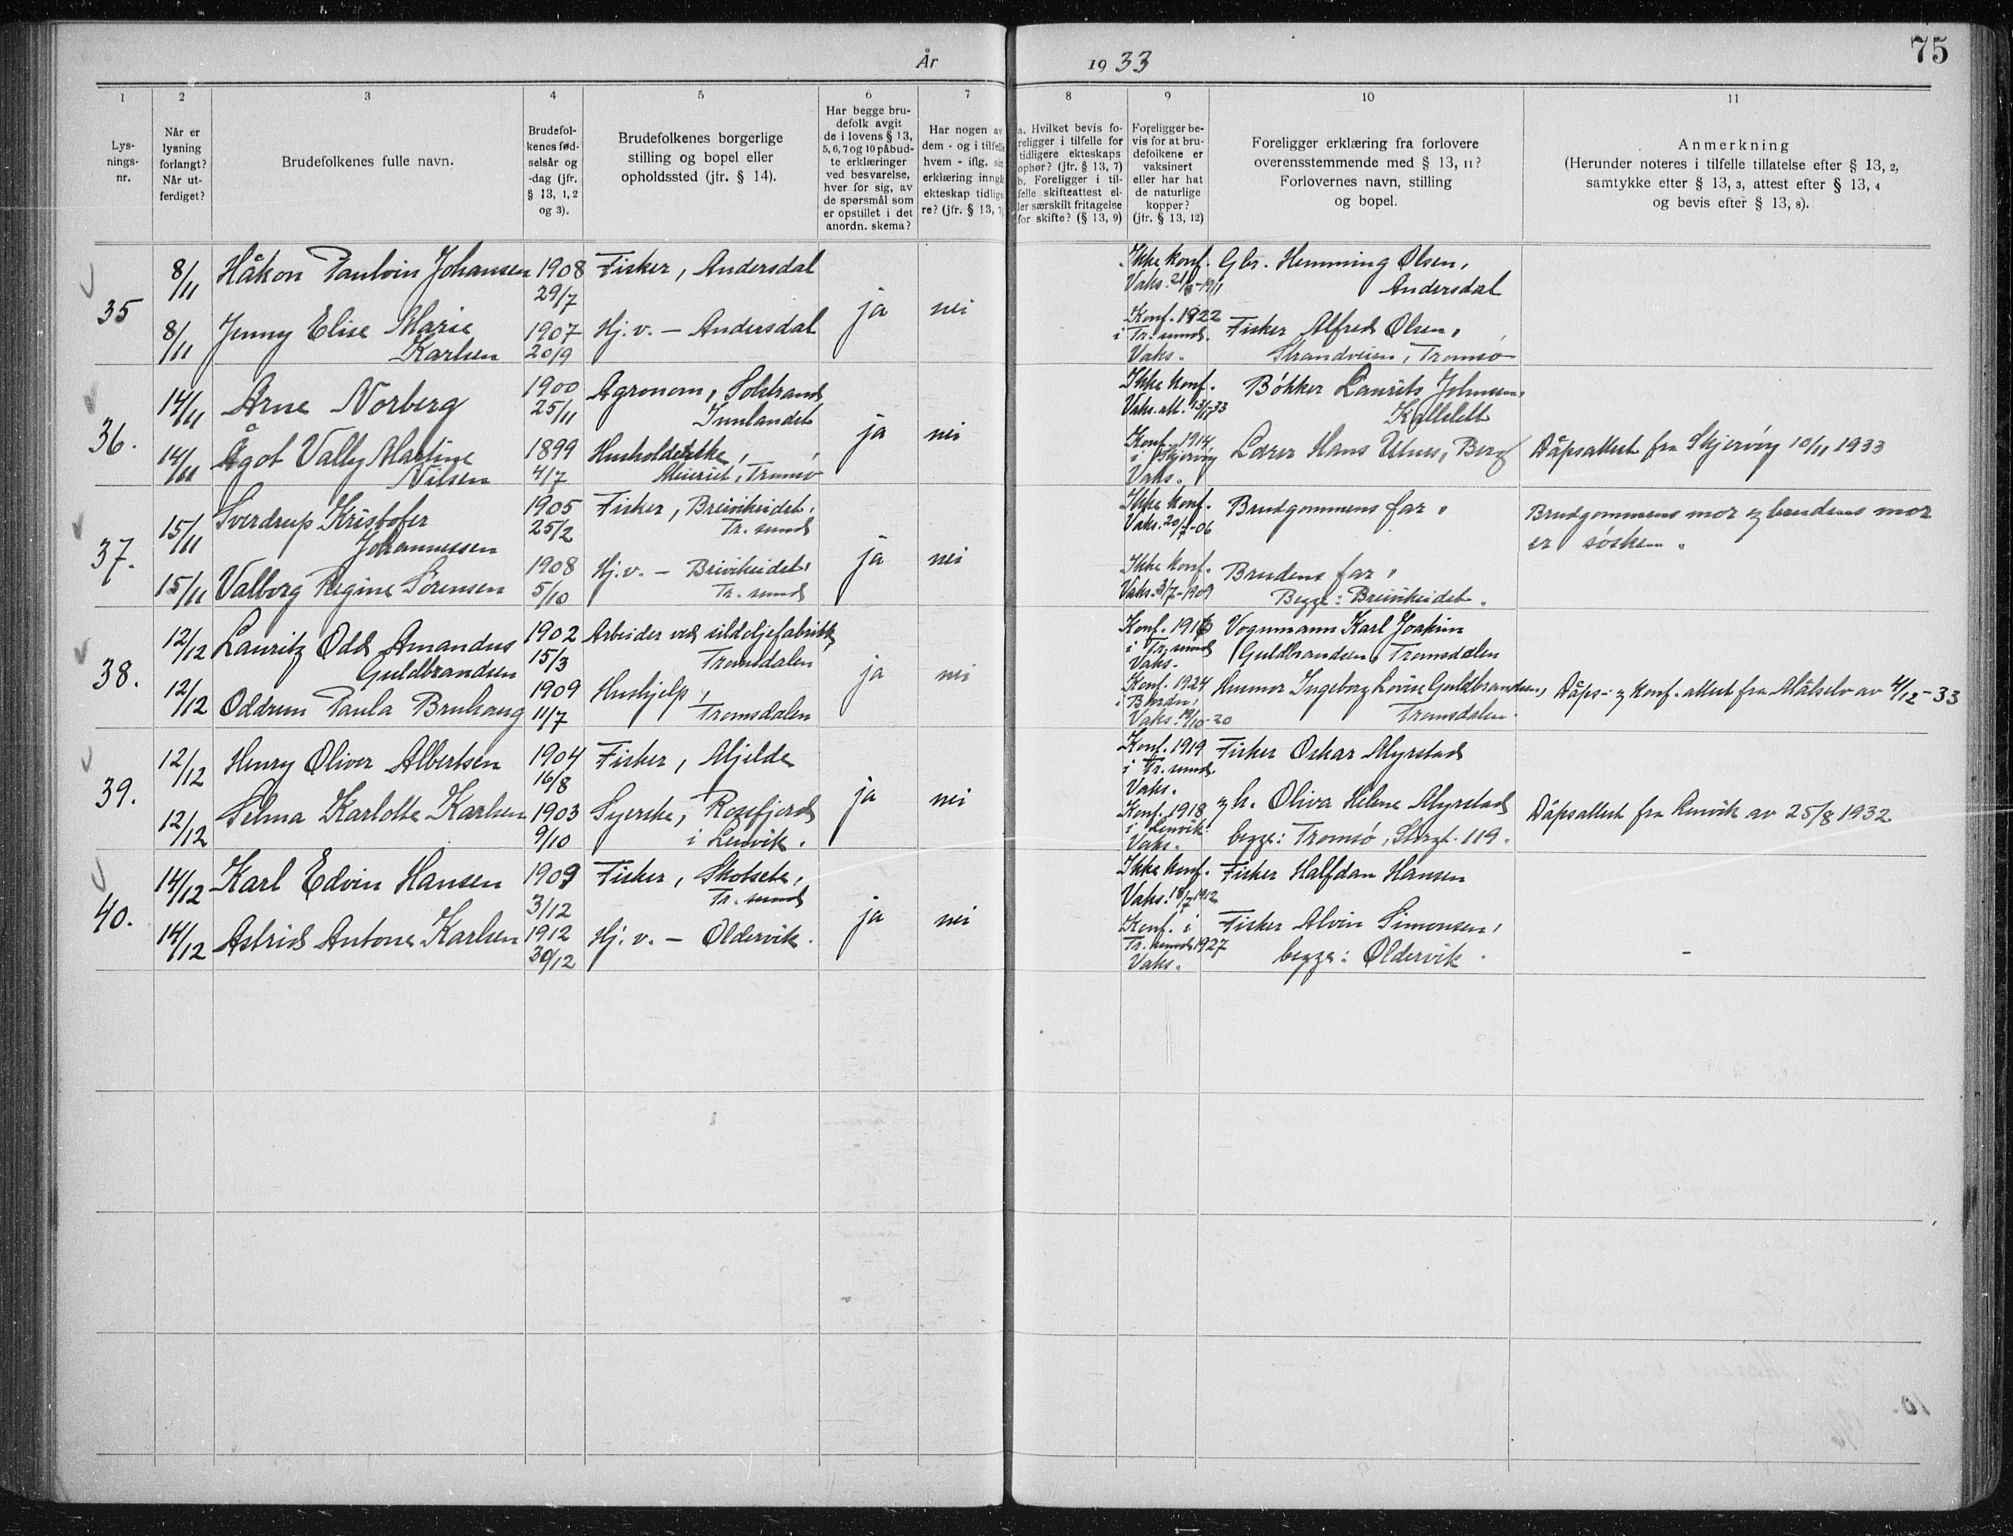 År 1933
75
1
Lys-
nings-
nr.
2
Når er
lysning
forlangt?
Når ut-
ferdiget?
3
Brudefolkenes fulle navn.
4
Brudefol-
kenes fød-
selsår og
-dag (jfr.
§ 13, 1, 2
og 3).
5
Brudefolkenes borgerlige
stilling og bopel eller
opholdssted (jfr. § 14).
6
Har begge bru-
defolk avgit
de i lovens § 13,
5, 6, 7 og 10 påbud-
te erklæringer
ved besvarelse,
hver for sig, av
de spørsmål som
er opstillet i det
anordn. skema?
7
Har nogen av
dem - og i tilfelle
hvem - iflg. sin
erklæring inngå
ekteskap tidlige
re? (jfr. § 13, 7)
8
a. Hvilket bevis fo-
religger i tilfelle for
tidligere ekteskaps
ophør? (jfr. § 13, 7)
b. Foreligger i til-
felle skifteattest el-
ler særskilt fritagelse
for skifte? (§ 13, 9)
9
Foreligger be-
vis for at bru-
defolkene er
vaksinert
eller har hat
de naturlige
kopper?
(jfr. § 13, 12)
10
Foreligger erklæring fra forlovere
overensstemmende med § 13, 11?
Forlovernes navn, stilling
og bopel.
11
Anmerkning
(Herunder noteres i tilfelle tillatelse efter § 13, 2,
samtykke efter § 13, 3, attest efter § 13, 4
og bevis efter § 13, 8).
35
8/11
Håkon Paulvin Johansen
1908
29/7
Fisker, Andersdal
ja
nei
Ikke konf.
Vaks.
Gbr. Hemming Olsen,
Andersdal
8/11
Jenny Elise Marie
Karlsen
1907
20/9
Hj.v. - Andersdal
Konf. 1922
i Tr. sund.
Vaks.
Fisker Alfred Olsen,
Strandveien, Tromsø
36.
14/11
Arne Norberg
1900
25/11
Agronom, Solstrand
Innlandet
ja
nei
Ikke konf.
Vaks. att. 13/11 33
Bøkker Laurits Johnsen,
Kallslett
14/11
Ågot Vally Martine
Nilsen
1899
4/7
Meieriet, Tromsø
Konf. 1914
i Skjervøy
Vaks.
Lærer Hans Utnes, Berg
Dåpsattest fra Skjervøy 10/11 1933
37.
15/11
Sverdrup Kristofer
Johannessen
1905
25/2
Fisker, Breivikeidet,
Tr. sund
ja
nei
Ikke konf.
Vaks. 20/7-06
Brudgommens far,
Brudgommens mor og brudens mor
er søsken.
15/11
Valborg Regine Sørensen
1908
5/10
Hj.v. - Breivikeidet,
Tr. sund
Ikke konf.
Vaks. 3/7-1909
Brudens far,
Begge: Breivikeidet.
38.
12/12
Lauritz Odd Amandus
Guldbrandsen
1902
15/3
Arbeider ved sildoljefabrikk,
Tromsdalen
ja
nei
Konf. 1916
i Tr. sund
Vaks.
Vognmann Karl Joakim
Guldbrandsen, Tromsdalen
12/12
Oddrun Paula Bruhaug
1909
11/7
Hushjelp,
Tromsdalen
Konf. 1924
i Bardu,
Vaks. 19/10-20
Husmor Ingeborg Lovise Guldbrandsen,
Tromsdalen.
Dåps- og Konf. attest fra Målselv av 4/12-33
39.
12/12
Henry Oliver Albertsen
1904
16/8
Fisker, Mjelde
ja
nei
Konf. 1919
i Tr. sund.
Vaks.
Fisker Oskar Myrstad
12/12
Selma Karlotte Karlsen
1903
9/10
Syerske, Rossfjord
i Lenvik.
Konf. 1918
i Lenvik.
Vaks.
og h. Oliva Helene Myrstad
begge: Tromsø, Storgt. 119.
Dåpsattest fra Lenvik av 25/8 1932
40.
14/12
Karl Edvin Hansen
1909
3/12
Fisker, Skotsete,
Tr. sund
ja
nei
Ikke konf.
Vaks. 18/7 1912
Fisker Halfdan Hansen
14/12
Astrid Antone Karlsen
1912
30/12
Hj.v. - Oldervik.
Konf. i
Tr. sund 1927
Vaks.
Fisker Alvin Simonsen,
begge: Oldervik.
-